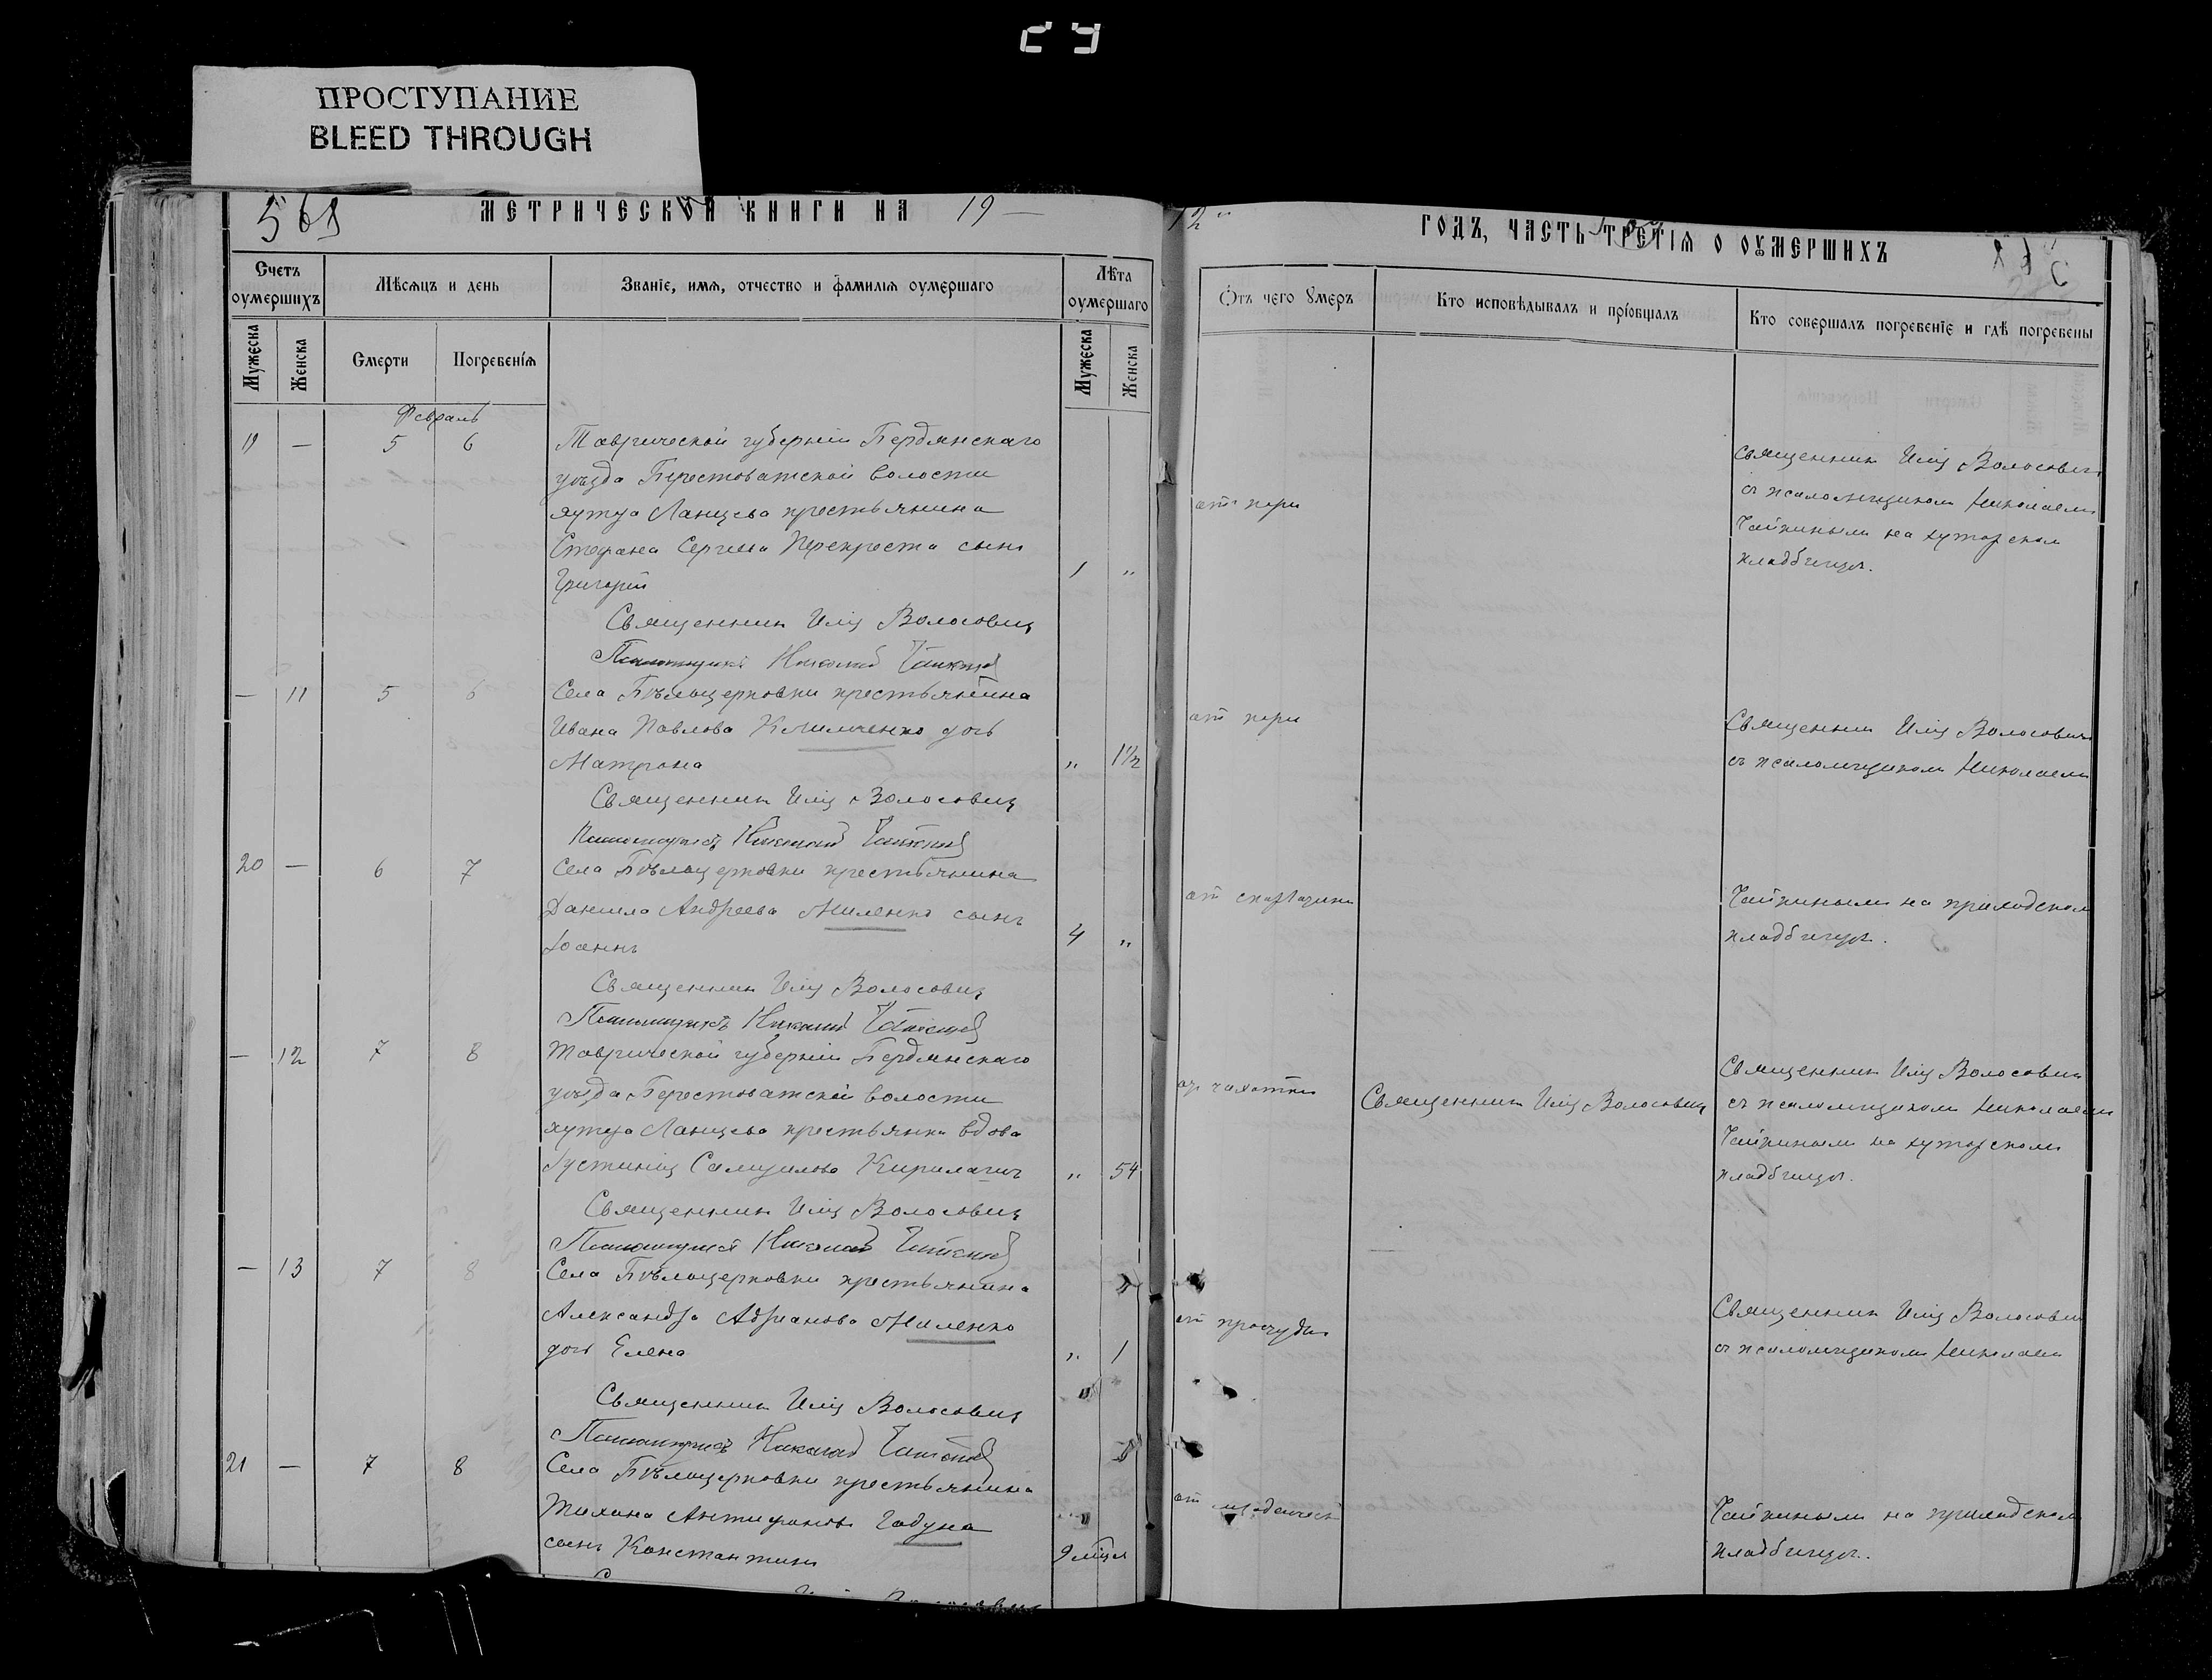 ПРОСТУПАНИЕ
BLEED THROUGH
568
МЕТРИЧЕСКОЙ КНИГИ НА 19—
12 "
ГОДЪ, ЧАСТЬ ТРЕТІЯ О ОУМЕРШИХЪ
Счетъ оумершихъ
Мѣсяцъ и день
Званіе, имя, отчество и фамилія оумершаго
Лѣта оумершаго
Отъ чего умеръ
Кто исповѣдывалъ и пріобщалъ
Кто совершалъ погребеніе и гдѣ погребены
Мужеска
Женска
Смерти
Погребенія
Мужеска
Женска
Февраль
19 — 5 6
Таврической губерніи Бердянскаго
уѣзда Берестоватской волости
хутора Ланцева крестьянина
Стефана Сергиева Перекреста сынъ
Григорій
1 "
отъ кори
Священникъ Илія Волосовичъ
съ псаломщикомъ Николаемъ
Чайкинымъ на хуторском
кладбищѣ.
Священникъ Илія Волосовичъ
Псаломщикъ Николай Чайкинъ
— 11 5 6
Села Бѣлоцерковки крестьянина
Ивана Павлова Климченко дочь
Матрона
" 1½
отъ кори
Священникъ Илія Волосовичъ
съ псаломщикомъ Николаемъ
Священникъ Илія Волосовичъ
Псаломщикъ Николай Чайкинъ
20 — 6 7
Села Бѣлоцерковки крестьянина
Даніила Андреева Миленко сынъ
Іоаннъ
4 "
отъ скарлатины
Чайкинымъ на приходском
кладбищѣ.
Священникъ Илія Волосовичъ
Псаломщикъ Николай Чайкинъ
— 12 7 8
Таврической губерніи Бердянскаго
уѣзда Берестоватской волости
хутора Ланцева крестьянка вдова
Іустинія Самуилова
" 54
отъ чахотки
Священникъ Илія Волосовичъ
Священникъ Илія Волосовичъ
съ псаломщикомъ Николаемъ
Чайкинымъ на хуторскомъ
кладбищѣ.
Священникъ Илія Волосовичъ
Псаломщикъ Николай Чайкинъ
— 13 7 8
Села Бѣлоцерковки крестьянина
Александра Адрианова Миленко
дочь Елена
" 1
отъ простуды
Священникъ Илія Волосовичъ
съ псаломщикомъ Николаемъ
Священникъ Илія Волосовичъ
Псаломщикъ Николай Чайкинъ
21 — 7 8
Села Бѣлоцерковки крестьянина
Тихона Годуна
сынъ Константинъ
9 мѣся
отъ
Чайкинымъ на приходском
кладбищѣ.